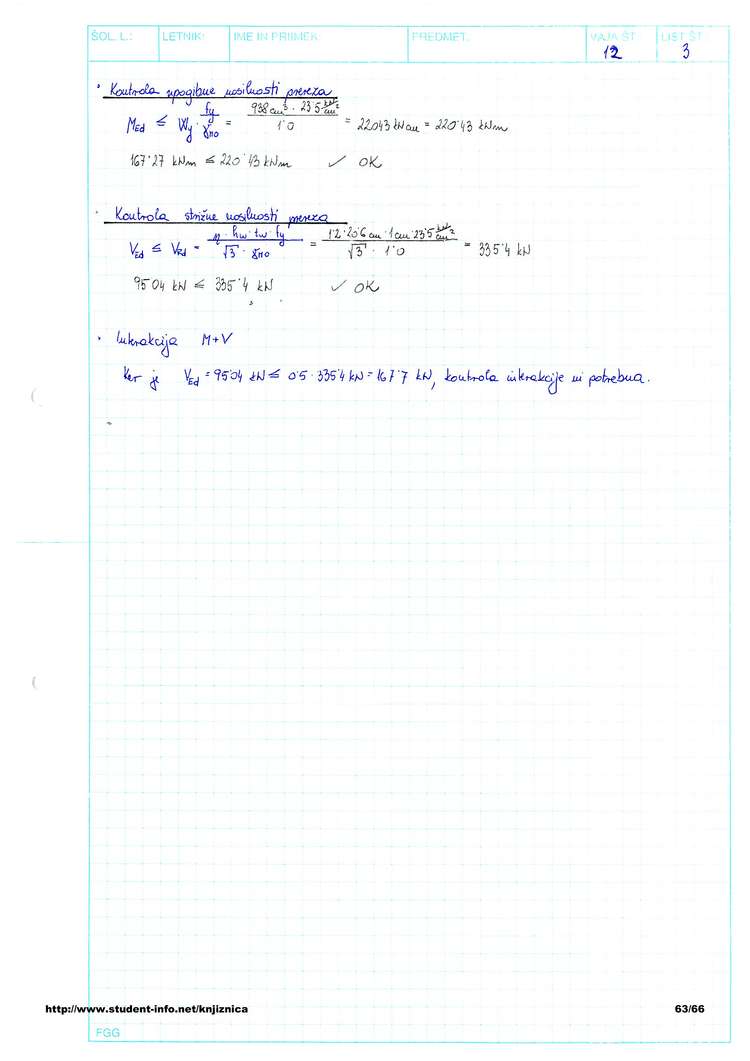 ŠOL. L.: LETNIK: IME IN PRIIMEK: PREDMET: VAJA ŠT. LIST ŠT.
12 3
• Kontrola upogibne nosilnosti prereza
M_Ed ≤ W_y · f_y / γ_M0 = 938 cm³ · 23'5 kN/cm² / 1'0 = 22043 kNcm = 220'43 kNm
167'27 kNm ≤ 220'43 kNm ✓ OK
• Kontrola strižne nosilnosti prereza
V_Ed ≤ V_Rd = η · h_w · t_w · f_y / √3 · γ_M0 = 1'2 · 20'6 cm · 1 cm · 23'5 kN/cm² / √3 · 1'0 = 335'4 kN
95'04 kN ≤ 335'4 kN ✓ OK
• Interakcija M+V
Ker je V_Ed = 95'04 kN ≤ 0'5 · 335'4 kN = 167'7 kN, kontrola interakcije ni potrebna.
http://www.student-info.net/knjiznica 63/66
FGG